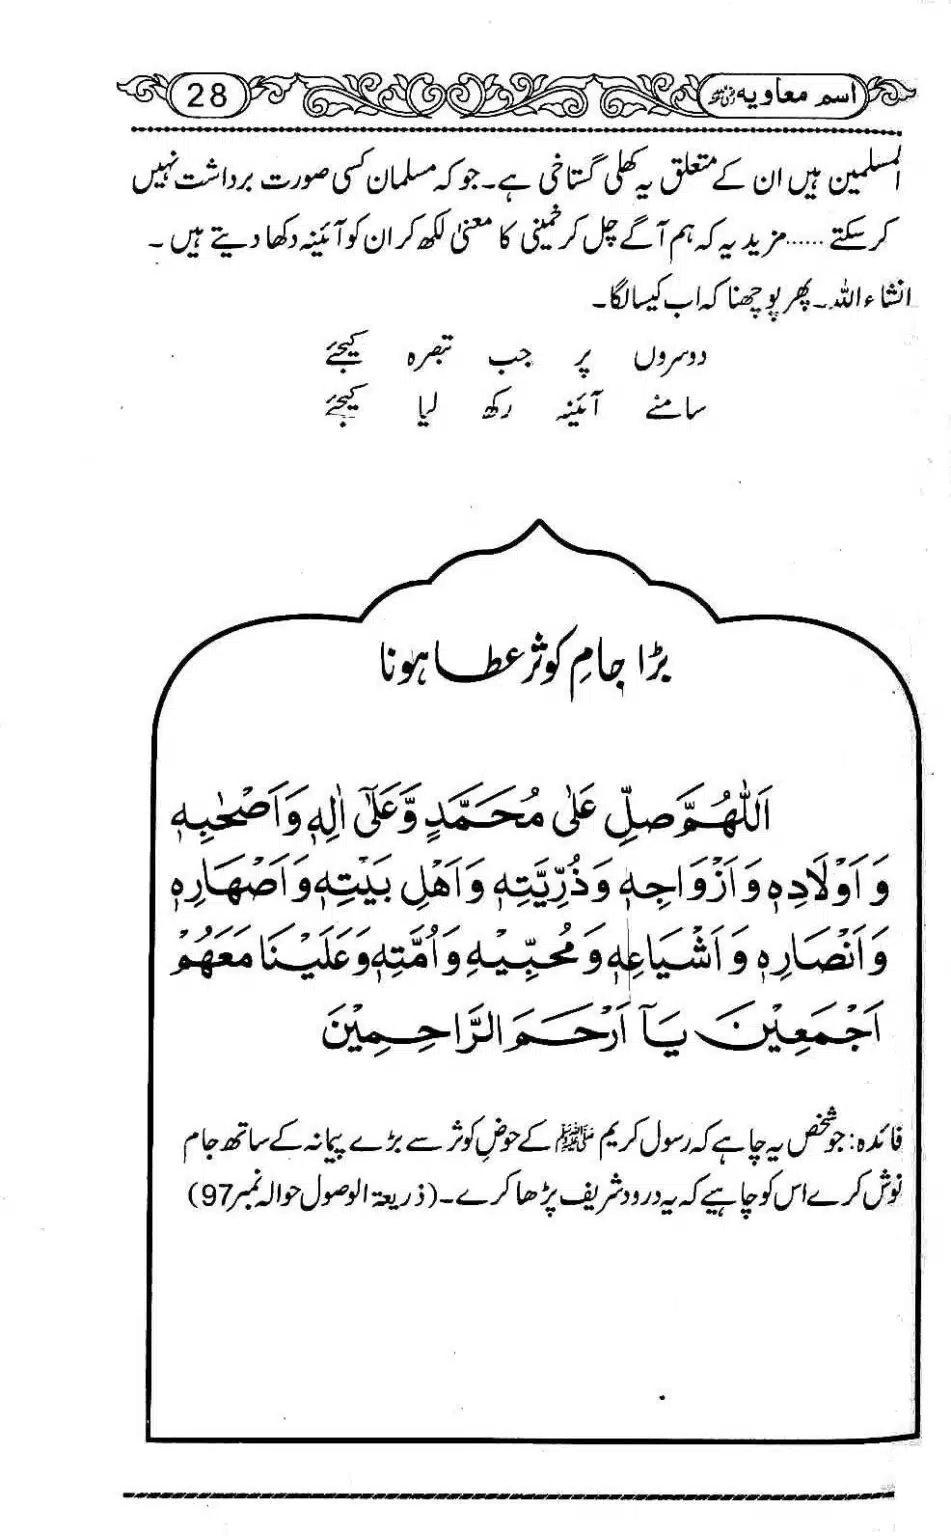 اسم معاویہؓ
28
المسلمین ہیں ان کے متعلق یہ کھلی گستاخی ہے۔ جو کہ مسلمان کسی صورت برداشت نہیں
کر سکتے ...... مزید یہ کہ ہم آگے چل کر خمینی کا معنیٰ لکھ کر ان کو آئینہ دکھا دیتے ہیں ۔
انشاء اللہ۔ پھر پوچھنا کہ اب کیسا لگا۔
دوسروں پر جب تبصرہ کیجئے
سامنے آئینہ رکھ لیا کیجئے
بڑا جامِ کوثر عطا ہونا
اَللّٰهُمَّ صَلِّ عَلٰى مُحَمَّدٍ وَّعَلٰٓى اٰلِهٖ وَاَصْحٰبِهٖ
وَاَوْلَادِهٖ وَاَزْوَاجِهٖ وَذُرِّيَّتِهٖ وَاَهْلِ بَيْتِهٖ وَاَصْهَارِهٖ
وَاَنْصَارِهٖ وَاَشْيَاعِهٖ وَمُحِبِّيْهِ وَاُمَّتِهٖ وَعَلَيْنَا مَعَهُمْ
اَجْمَعِيْنَ يَآ اَرْحَمَ الرَّاحِمِيْنَ
فائدہ: جو شخص یہ چاہے کہ رسول کریم ﷺ کے حوضِ کوثر سے بڑے پیمانہ کے ساتھ جام
نوش کرے اس کو چاہیے کہ یہ درود شریف پڑھا کرے۔ (ذریعۃ الوصول حوالہ نمبر 97)